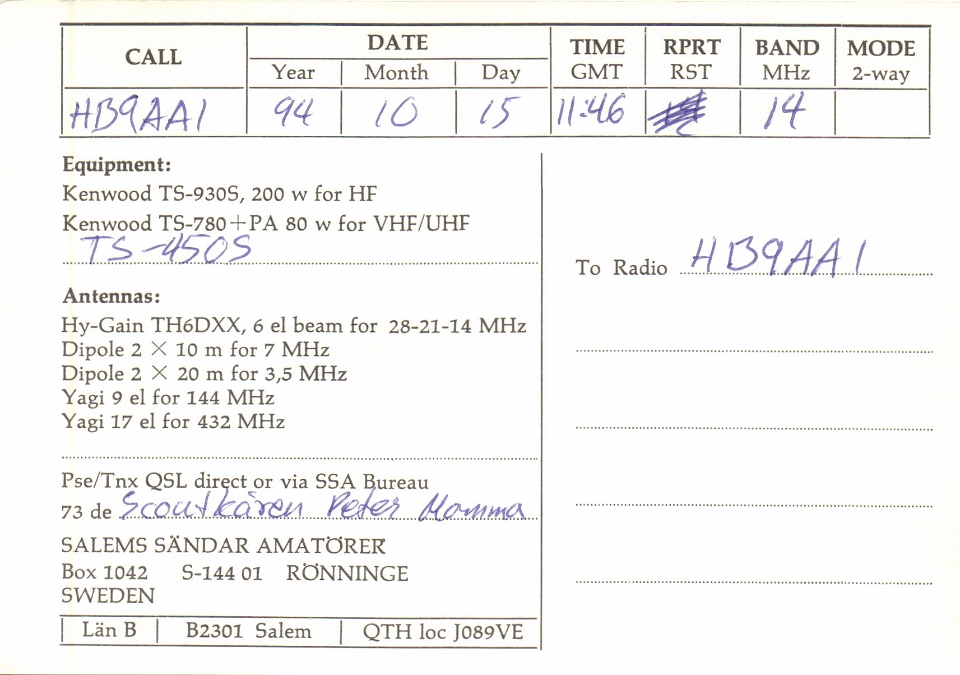 CALL DATE TIME RPRT BAND MODE
Year Month Day GMT RST MHz 2-way
HB9AA1 94 10 15 11:46 14
Equipment:
Kenwood TS-930S, 200 w for HF
Kenwood TS-780+PA 80 w for VHF/UHF
TS-450S
To Radio HB9AA1
Antennas:
Hy-Gain TH6DXX, 6 el beam for 28-21-14 MHz
Dipole 2 × 10 m for 7 MHz
Dipole 2 × 20 m for 3,5 MHz
Yagi 9 el for 144 MHz
Yagi 17 el for 432 MHz
Pse/Tnx QSL direct or via SSA Bureau
73 de Scoutkåren Peter Momma
SALEMS SÄNDAR AMATÖRER
Box 1042 S-144 01 RÖNNINGE
SWEDEN
Län B B2301 Salem QTH loc J089VE